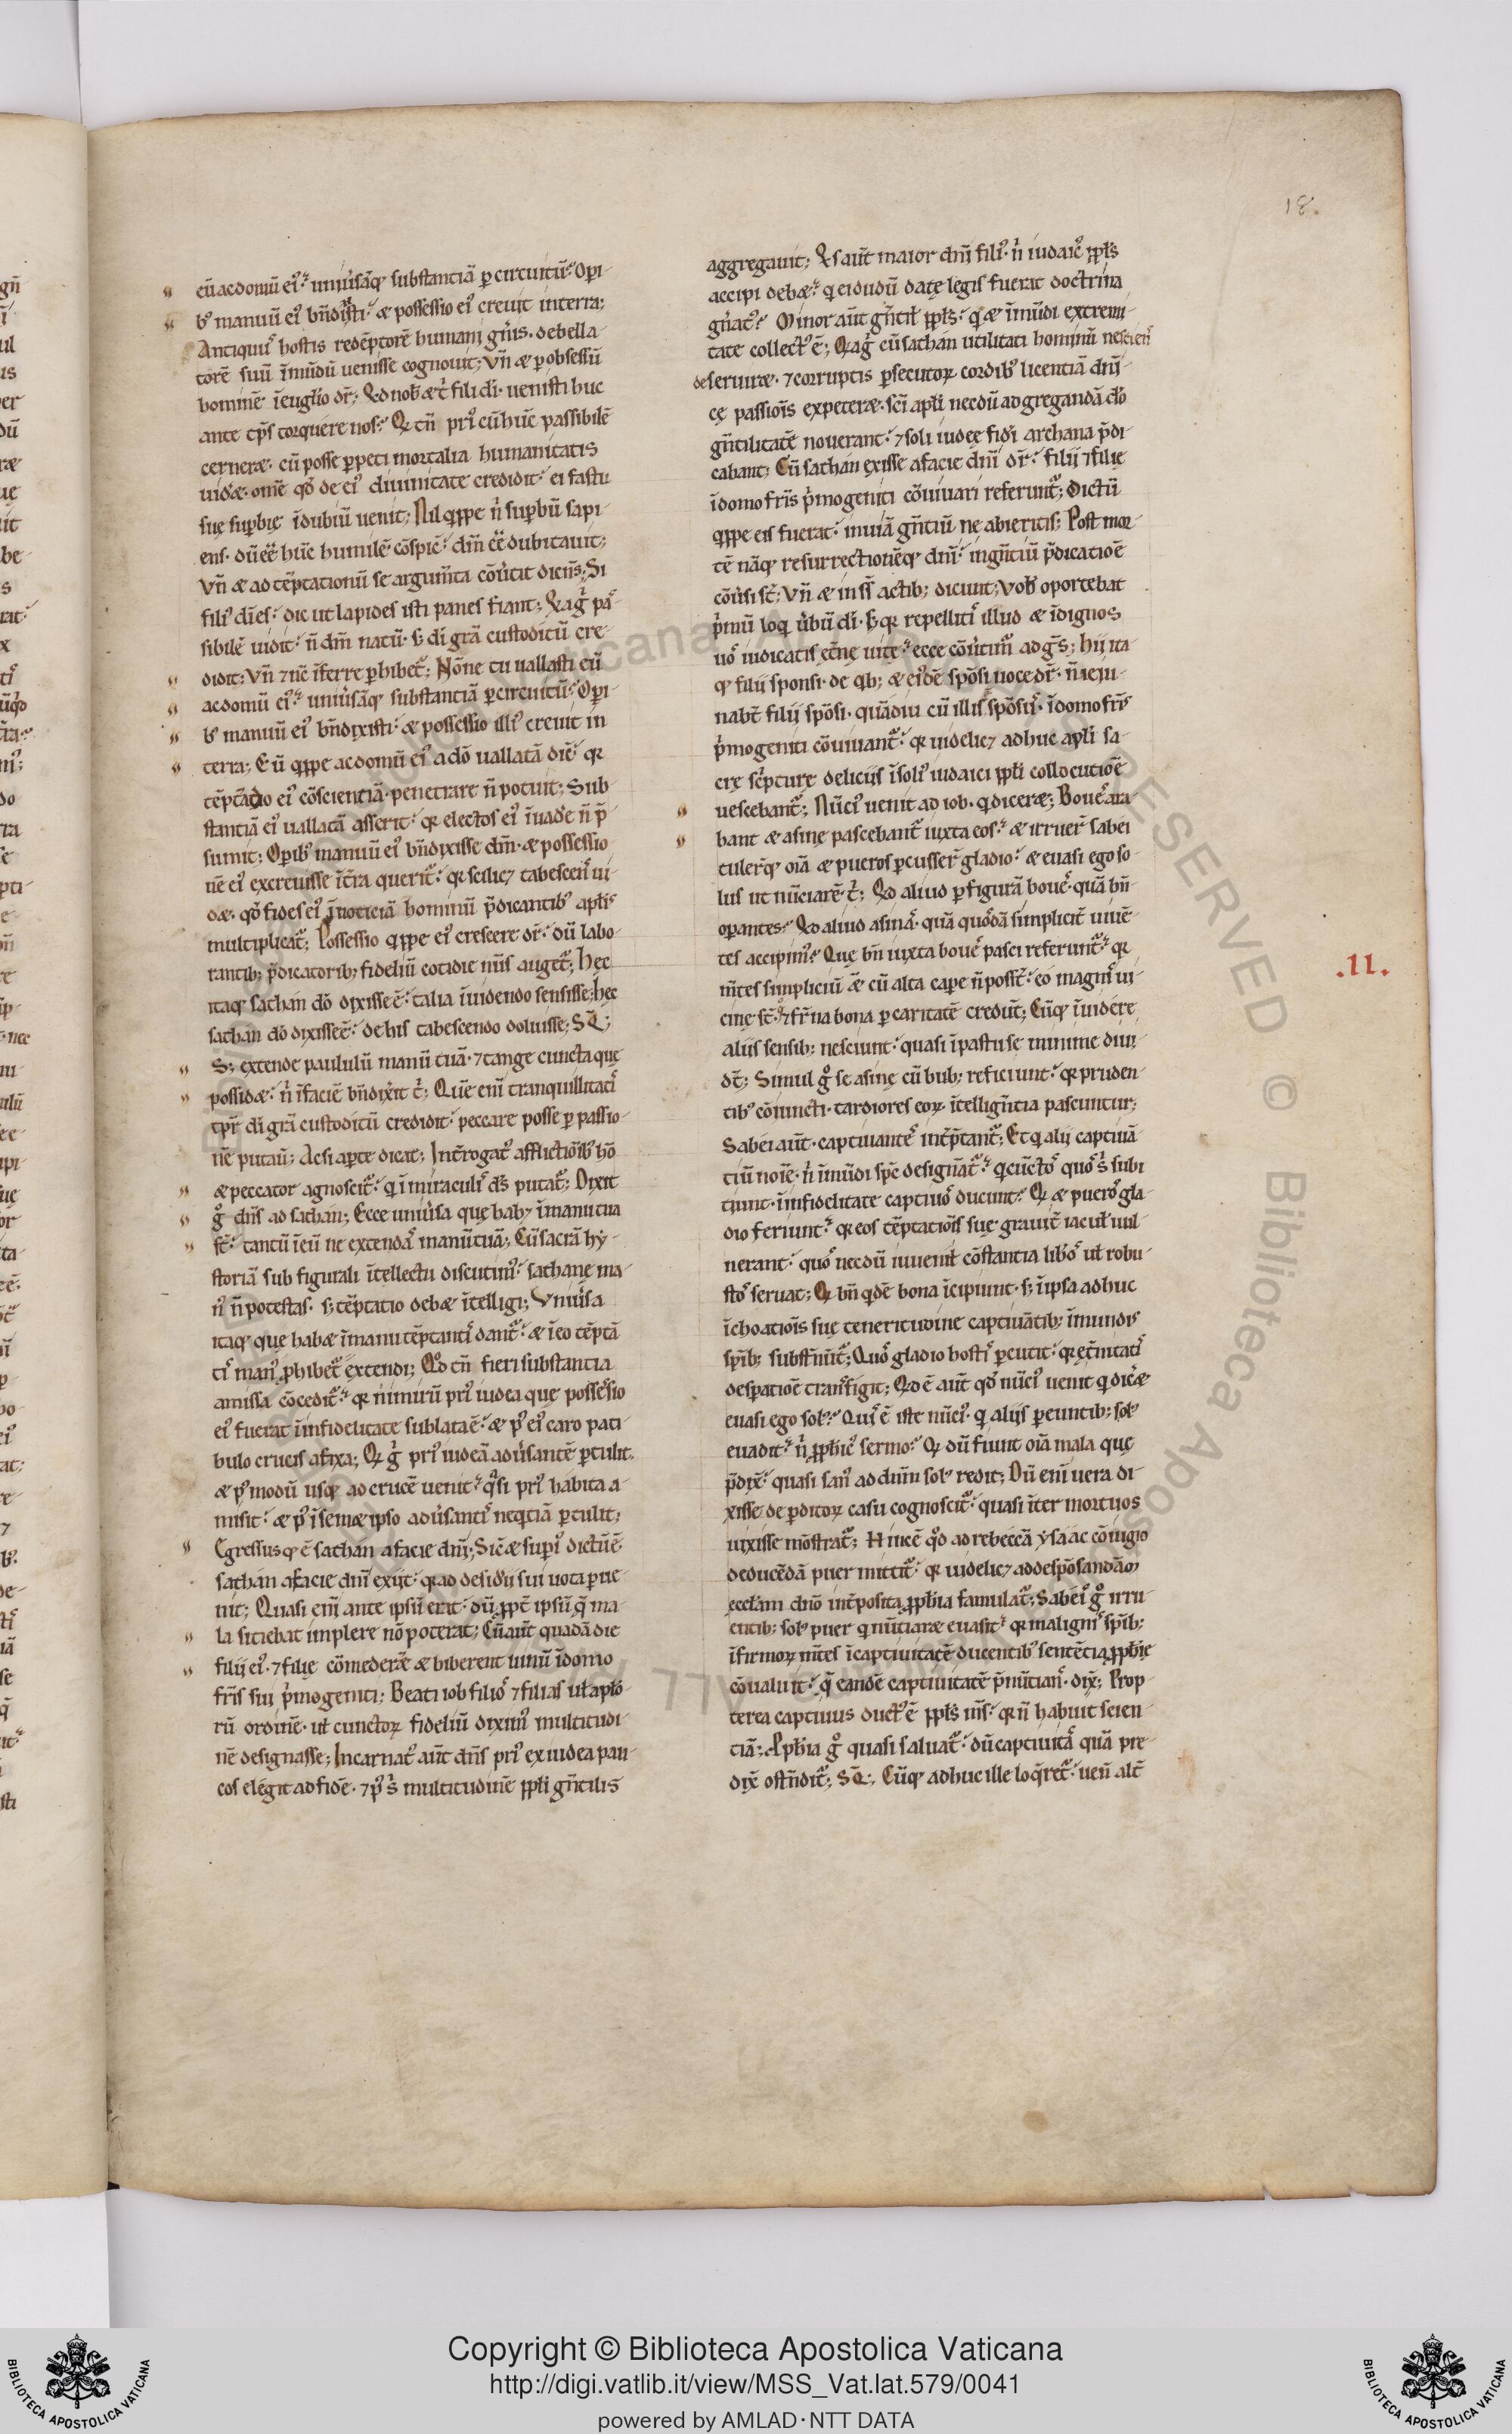 18.
eū ac domū ei᷒ uniu̾sāq; substantiā p̱ circuitū. Opi-
b᷒ manuū ei᷒ bn̄dixisti. & possessio ei᷒ creuit in terra;
Antiquu᷒ hostis redēptorē humani gn̄is. debella-
torē suū ī mūdū uenisse cognouit; Vn̄ & p̱ obsessū
hominē ī eugl̄io dr̄; Qd nob̄ & t̾ fili di̅. uenisti huc
ante tp̄s torquere nos. Q; tn̄ pri᷒ cū hūc passibilē
cerner&. cū posse p̱peti mortalia humanitatis
uid&. omē qd̄ de ei᷒ diuinitate credidit. ei fastu
suę sup̱bię ī dubiū uenit; Nil q̱ppe n̾ sup̱bū sapi-
ens. dū eē hūc humilē cōspic̄. dm̄ eē dubitauit;
Vn̄ & ad tēptationū se argum̄ta cōu̾tit dicn̄s; Si
fili᷒ di̅ es. dic ut lapides isti panes fiant; Q; ag̾ pas-
sibilē uidit. n̄ dm̄ natū. s; di̅ grā custoditū cre-
didit; Vn̄ ⁊ nc̄ īferre p̱hibet᷑; Nōne tu uallasti eū
ac domū ei᷒ uniu̾sāq; substantiā p̱ circuitū. Opi-
b᷒ manuū ei᷒ bn̄dixisti. & possessio illi᷒ creuit in
terra; Eū q̱ppe ac domū ei᷒ a dō uallatā dic̄. q;
tēptādo ei᷒ cōscientiā. penetrare n̄ potuit; Sub-
stantiā ei᷒ uallatā asserit. q; electos ei᷒ īuad̾e n̄ p̄-
sumit; Opib᷒ manuū ei᷒ bn̄dixisse dm̄. & possessio-
nē ei᷒ excreuisse ī t̾ra querit᷑. q; scilic; tabescens ui-
d&. qd̄ fides ei᷒ ī noticiā hominū p̄dicantib᷒ apl̄is
multiplicat᷑; Possessio q̱ppe ei᷒ crescere dr̄. dū labo-
rantib; p̄dicatorib; fideliū cotidie num̾s auget᷑; Hęc
itaq; sathan dō dixisse ē. talia īuidendo sensisse; hęc
sathan dō dixisse ē. de his tabescendo doluisse; SQ;
S; extende paululū manū tuā. ⁊ tange cuncta quę
possid&. n̾ ī faciē bn̄dixit t̾; Quē eni̅ tranquillitatis
tp̄r di̅ grā custoditū credidit. peccare posse p̱ passio-
nē putau̅; Acsi apte dicat; Int̾rogat᷒ afflictiōib᷒ hō
& peccator agnoscit᷑. q̱ ī miraculis dš̄ putat᷑; Dixit
g̊ dn̄s ad sathan; Ecce uniu̾sa quę hab; ī manu tua
st̄. tantū ī eū ne extendas manū tuā; Cū sacrā hy-
storiā sub figurali ītellectu discutim᷒. sathanę ma-
n᷒ n̄ potestas. s; tēptatio deb& ītelligi; Vniu̾sa
itaq; quę hab& ī manu tēptantis dant᷑. & ī eo tēptā-
tis man᷒ p̱hibet᷑ extendi; Qd̄ tn̄ fieri substantia
amissa cōcedit᷑. q; nimirū pri᷒ iudea quę possessio
ei᷒ fuerat īinfidelitate sublata ē. & p᷒ ei᷒ caro pati-
bulo crucis afixa; Q; g̾ pri᷒ iudeā adu̾santē p̱tulit.
& p᷒modū usq; ad crucē uenit. q̄si pri᷒ habita a-
misit. & p᷒ ī sem& ipso adu̾santis neq̱tiā p̱tulit;
Egressusq; ē sathan a facie dn̄i; Sic̄ & sup̱i᷒ dictū ē.
sathan a facie dn̄i exiit. q; ad desid̾ii sui uota p̱ue-
nit; Quasi eni̅ ante ipsū erat. dū p̱pt̄ ipsū q̄ ma-
la sitiebat implere nō poterat; Cū aūt quadā die
filii ei᷒. ⁊ filię cōmeder& & biberent uinū ī domo
fr̄is sui p̾mogeniti; Beati iob filios ⁊ filias ul̄ apl̄o-
rū ordinē. ul̄ cunctoꝝ fideliū dixim᷒ multitudi-
nē designasse; Incarnat᷒ aūt dn̄s pri᷒ ex iudea pau-
cos elegit ad fidē. ⁊ p᷒ s̾ multitudinē ppl̄i gn̄tilis
aggregauit; Q; s aūt maior dn̄i fili᷒. n̾ iudaic᷒ ppl̄s
accipi deb&. q̱ ei dudū datę legis fuerat doctrina
gn̄at᷒. Minor aūt gn̄til̄ ppl̄s. q̱ & ī mūdi extremi-
tate collect᷒ ē; Q; ag̾ cū sathan utilitati hominū nesciens
deseruir&. ⁊ corruptis p̱secutoꝝ cordib᷒ licentiā dn̄i-
cę passiōis expeter&. sci̅ apl̄i necdū adgregandā dō
gn̄tilitatē nouerant. ⁊ soli iudeę fidi̅ archana p̄di-
cabant; Cū sathan exisse a facie dn̄i dr̄. filii ⁊ filię
ī domo fr̄is p̾mogeniti cōuiuari referunt᷑; Dictū
q̱ppe eis fuerat. in uiā gn̄tiū ne abieritis; Post mor-
tē nāq; resurrectionēq; dn̄i. in gn̄tiū p̄dicatiōē
cōu̾si st̄; Vn̄ & in s̄s̄ actib; dicunt; Vob̄ oportebat
p̾mū loq̱ u̾bū di̅. s; q; repellitis illud & īdignos
uos iudicatis et̄nę uitę. ecce cōu̾tim᷒ ad ḡs; Hii ita-
q; filii sponsi. de q̱b; & ei᷒dē spōsi uoce dr̄. n̄ ieiu-
nabt̄ filii spōsi. quādiu cū illis spōsus. ī domo fr̄is
p̾mogeniti cōuiuant᷑. q; uidelic; adhuc apl̄i sa-
crę sc̾pturę deliciis ī soli᷒ iudaici ppl̄i collocutiōe
uescebant᷑; Nūci᷒ uenit ad iob. q̱ dicer&; Boues ara-
bant & asinę pascebant᷑ iuxta eos. & irruer̄ sabei
tuler̄q; oīa & pueros p̱cusser̄ gladio. & euasi ego so-
lus ut nūciarē. t̾; Qd aliud p̱ figurā boues. quā bn̄
operantes. Qd aliud asinas. quā quosdā simplicit̾ uiuē-
tes accipim᷒. Quę bn̄ iuxta boues pasci referunt᷑. q;
m̄tes simpliciū &̄ cū alta cape n̄ posst̄. eo magis ui-
cinę st̄. q̊ ⁊ fr̄na bona p̱ caritatē credūt; Cūq; īuidere
aliis sensib; nesciunt. quasi ī pastu se minime diui-
dt̄; Simul g̊ se asinę cū bub; reficiunt. q; pruden-
tib᷒ cōiuncti. tardiores eoꝝ. ītellign̄tia pascuntur;
Sabei aūt. captiuantes int̾p̄tant᷑; Et q̱ alii captiuā-
tiū noīe. n̾ īmūdi sp̄c designāt᷑. q̱ cūctos quos s̾ subi-
ciunt. ī infidelitate captiuos ducunt. Q; & pueros gla-
dio feriunt. q; eos tēptatiōis suę grauit̾ iacul̄ uul-
nerant. quos necdū iuuenil̄ cōstantia liƀos ul̄ robu-
stos seruat; Q; bn̄ q̱dē bona īcipiunt. s; ī ipsa adhuc
īchoatiōis suę teneritudine captiuātib; īmundis
sp̄ib; substn̄unt᷑; Quos gladio hostis p̱cutit. q; et̾nitatis
desp̱atiōe transfigit; Qd ē aūt qd̄ nūci᷒ uenit q̱ dic̾&
euasi ego sol᷒. Quis ē iste nūci᷒. q̱ aliis p̱euntib; sol᷒
euadit. n̾ p̱ph̄ic᷒ sermo. Q; dū fiunt oīa mala quę
p̄dix̄. quasi san᷒ ad dn̄m sol᷒ redit; Dū eni̅ uera di-
xisse de p̱ditoꝝ casu cognoscit᷑. quasi īter mortuos
uixisse mōstrat᷑; Hinc ē qd̄ ad rebeccā ysaac cōiugio
deducēdā puer mittit᷑. q; uidelic; ad despōsandā
eccl̄am dn̄o int̾posita p̱ph̄ia famulat᷑; Sabeis g̊ irru-
entib; sol᷒ puer q̱ nūtiar& euasit. q; malignis sp̄ib;
īfirmoꝝ m̄tes ī captiuitatē ducentib᷒ sentētia p̱ph̄ię
cōualuit. q̄ eandē captiuitatē p̄nūtians. dix̄; Prop-
terea captiuus duct᷒ ē ppl̄s m̄s. q; n̄ habuit scien-
tiā; P̱ph̄ia g̊ quasi saluat᷑. dū captiuitas quā pre-
dix̄ ostn̄dit᷑; SQ; Cūq; adhuc ille loq̄ret᷑. uen̄ alt̾
.II.
Copyright © Biblioteca Apostolica Vaticana
http://digi.vatlib.it/view/MSS_Vat.lat.579/0041
powered by AMLAD·NTT DATA